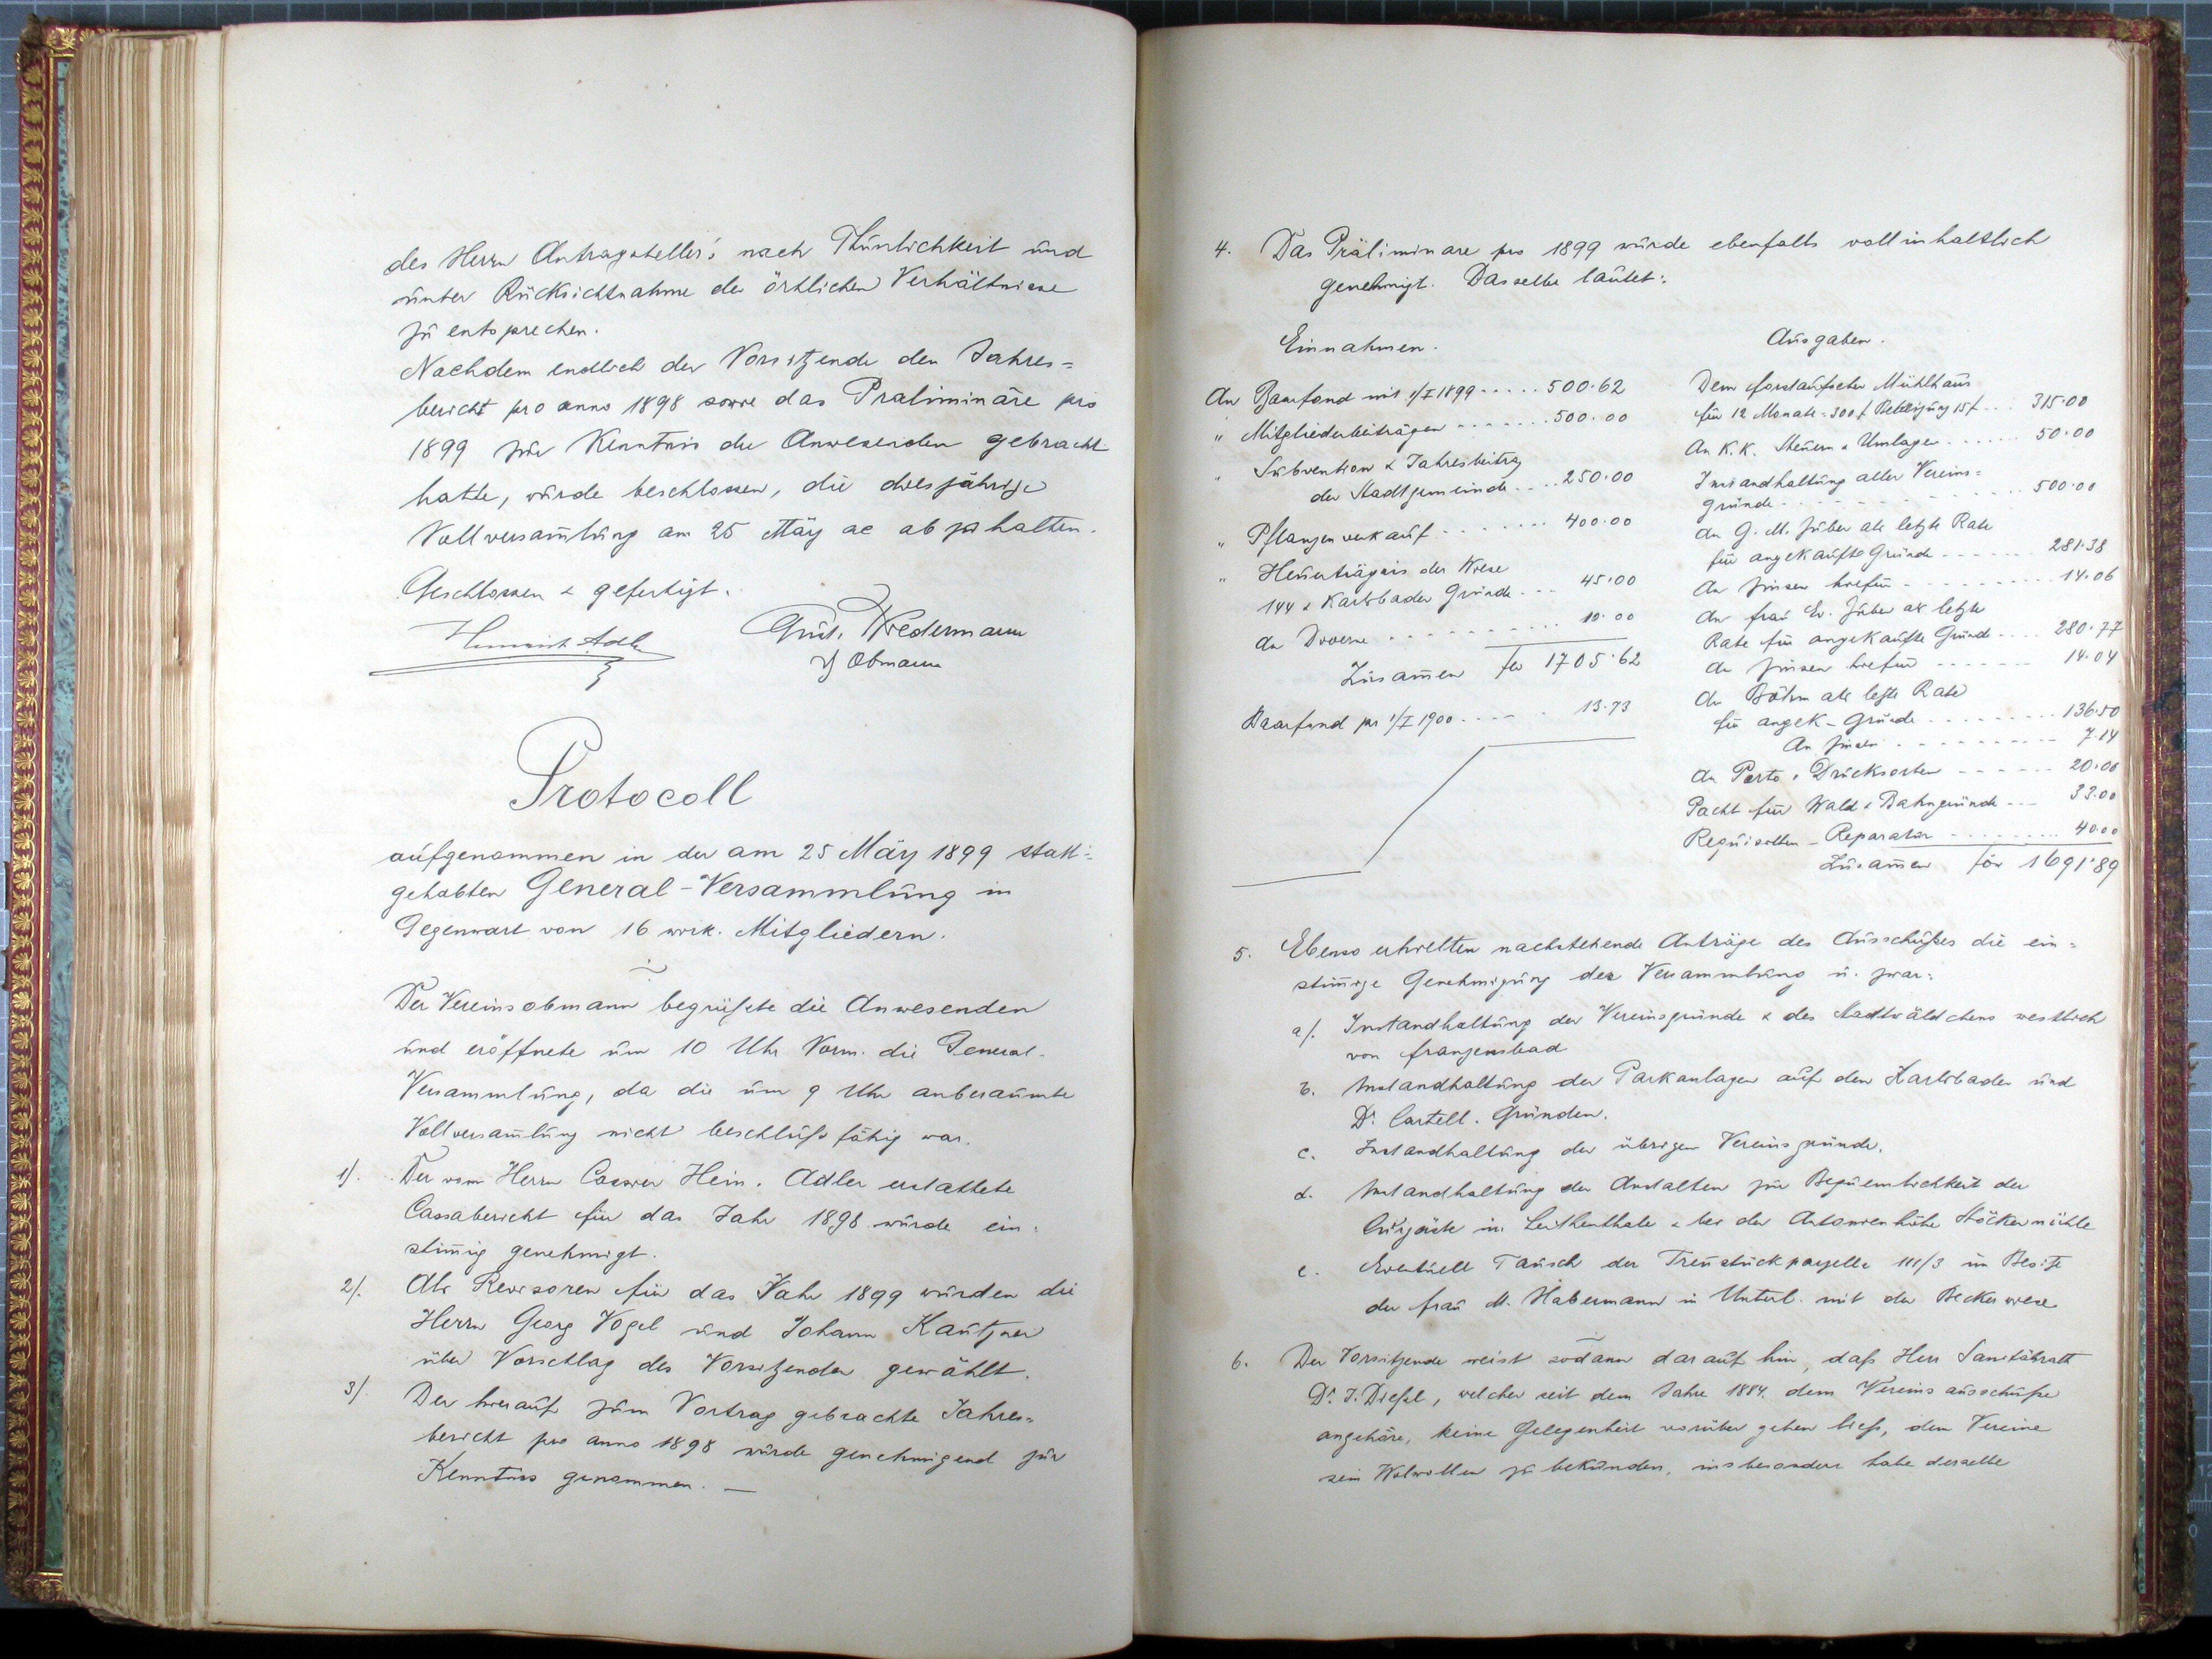 des Herrn Antragstellers nach Thunlichkeit und
unter Rücksichtnahme der örtlichen Verhältnisse
zu entsprechen.
Nachdem endlich der Vorsitzende den Jahres=
bericht pro anno 1898 sowie das Praliminäre pro
1899 zur Kenntnis der Anwesenden gebracht
hatte, wurde beschlossen, die diesjährige
Vollversam̅lung am 25 May ac abzuhalten.
Geschlossen & gefertigt.
Heinrich Adler
Gust. Wiedermann
Obmann
Protocoll
aufgenommen in der am 25 May 1899 statt=
gehabten General-Versammlung in
Gegenwart von 16 wirk. Mitgliedern.
Der Vereinsobmann begrüßte die Anwesenden
und eröffnete um 10 Uhr Vorm. die General-
Versammlung, da die um 9 Uhr anberaumte
Vollversam̅lung nicht beschlußfähig war.
1). Der vom Herrn Cassier Hein. Adler erstattete
Cassabericht für das Jahr 1898 wurde ein=
stim̅ig genehmigt.
2). Als Revisoren für das Jahr 1899 wurden die
Herrn Georg Vogel und Johann Kautzner
über Vorschlag des Vorsitzenden gewählt.
3). Der hierauf zum Vortrag gebrachte Jahres=
bericht pro anno 1898 wurde genehmigend zur
Kenntnis genommen. —
4. Das Präliminare pro 1899 wurde ebenfalls vollinhaltlich
genehmigt. Dasselbe lautet:
Einnahmen.
An Baarfond mit 1/I 1899 ..... 500.62
" Mitgliederbeiträgen ....... 500.00
" Subvention & Jahresbeitrag
der Stadtgemeinde .... 250.00
" Pflanzenverkauf ....... 400.00
" Heuerträgnis der Wiese
144 & Karlsbader Gründe ... 45.00
An Diverse .......... 10.00
Zusam̅en fl 1705.62
Baarfond pr 1/I 1900 ..... 13.73
Ausgaben.
Dem Forstaufseher Mühlhaus
für 12 Monate = 300 f Beteilgung 15 f ... 315.00
An K.K. Steuern & Umlagen ...... 50.00
Instandhaltung aller Vereins=
gründe ........... 500.00
An G. M. Zuber als letzte Rate
für angekaufte Gründe ...... 281.38
An Zinsen hiefür ......... 14.06
An Frau Ev. Zuber als letzte
Rate für angekaufte Gründe .... 280.77
An Zinsen hiefür ....... 14.04
An Böhm als letzte Rate
für angek- Gründe ......... 136.50
An Zinsen .......... 7.14
An Porto & Drucksorten ...... 20.00
Pacht für Wald & Bahngründe --- 33.00
Requisiten-Reparatur ......... 40.00
Zusam̅en för 1691.89
5. Ebenso erhielten nachstehende Anträge des Ausschußes die ein=
stim̅ige Genehmigung der Versammlung u. zwar:
a). Instandhaltung der Vereinsgründe & des Stadtwäldchens westlich
von Franzensbad
b. Instandhaltung der Parkanlagen auf den Karlsbader und
Dr. Cartell. Gründen.
c. Instandhaltung der übrigen Vereinsgründe.
d. Instandhaltung der Anstalten zur Bequemlichkeit der
Curgäste im Leithenthale & bei der Antonienhöhe Stöckermühle
e. Eventuell Tausch der Trenstückparzelle 111/3 im Besitz
der Frau M. Habermann in Unterl. mit der Beckerwiese
6. Der Vorsitzende weist sodann darauf hin, daß Herr Sanitätsrath
Dr. J. Dießl, welcher seit dem Jahre 1884 dem Vereinsausschuße
angehöre, keine Gelegenheit vorüber gehen ließ, dem Vereine
sein Wolwollen zu bekunden, insbesondere habe derselbe